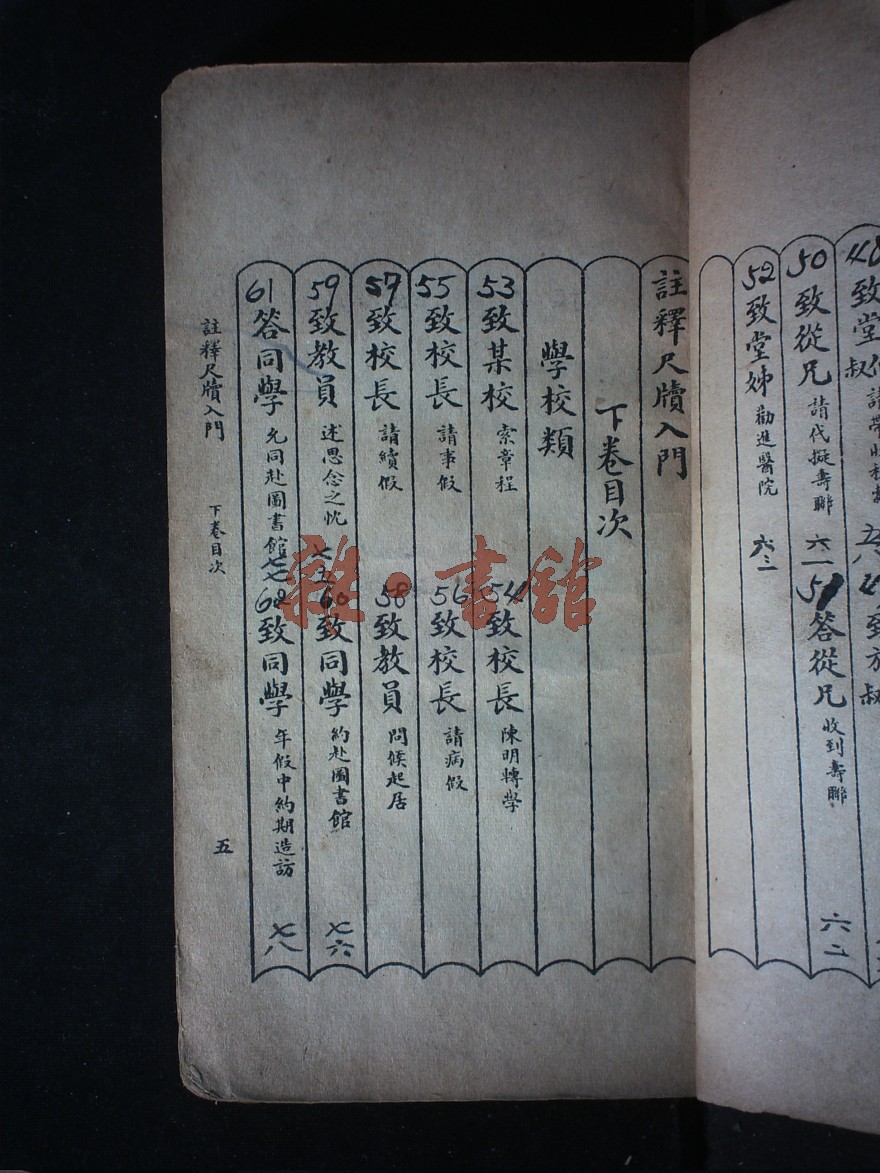 50致從兄 請代擬壽聯 六一
51答從兄 收到壽聯 六二
52致堂姊 勸進醫院 六三
註釋尺牘入門
下卷目次
學校類
53致某校 索章程
54致校長 陳明轉學
55致校長 請事假
56致校長 請病假
57致校長 請續假
58致教員 問候起居
59致教員 述思念之忱 七五
60致同學 約赴圖書館 七六
61答同學 允同赴圖書館 七七
62致同學 年假中約期造訪 七八
註釋尺牘入門 下卷目次 五
雜·書館